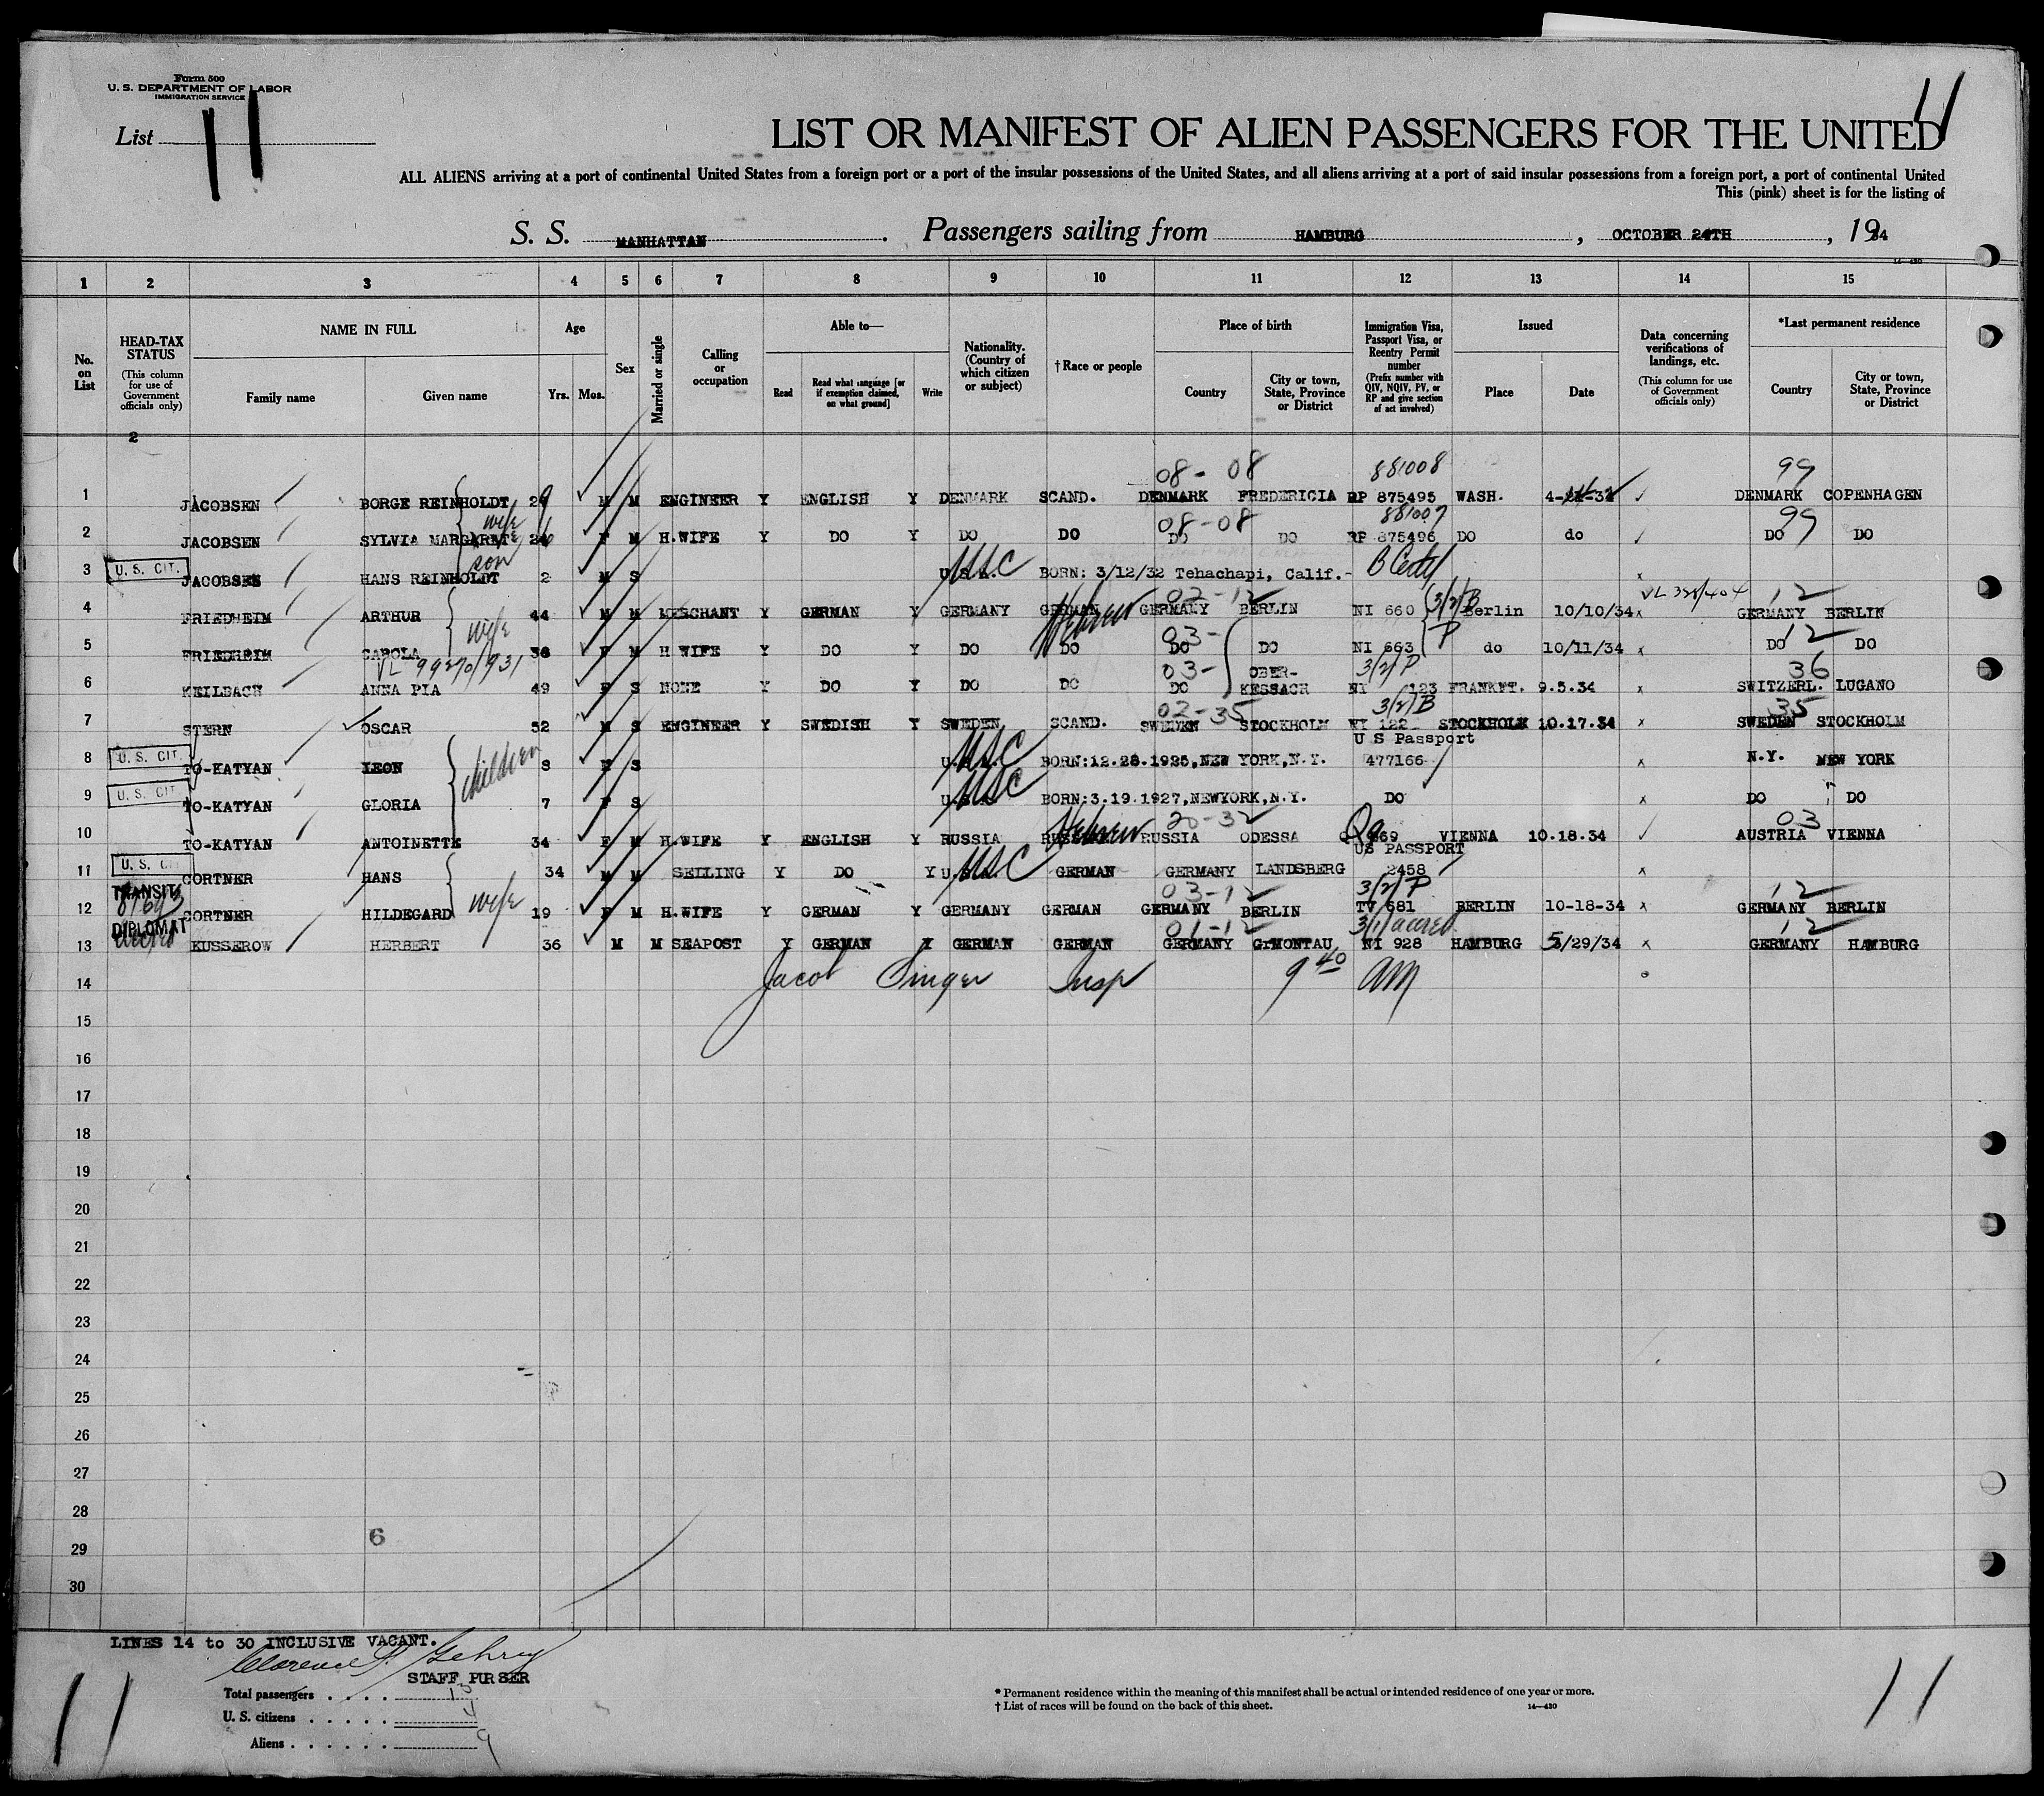 Form 500
U. S. DEPARTMENT OF LABOR
IMMIGRATION SERVICE
List 11
11
LIST OR MANIFEST OF ALIEN PASSENGERS FOR THE UNITED
ALL ALIENS arriving at a port of continental United States from a foreign port or a port of the insular possessions of the United States, and all aliens arriving at a port of said insular possessions from a foreign port, a port of continental United
This (pink) sheet is for the listing of
S. S. MANHATTAN. Passengers sailing from HAMBURG, OCTOBER 24TH, 1934
14—430
1 2 3 4 5 6 7 8 9 10 11 12 13 14 15
No. on List
HEAD-TAX STATUS
(This column for use of Government officials only)
NAME IN FULL
Family name Given name
Age
Yrs. Mos.
Sex
Married or single
Calling or occupation
Able to—
Read
Read what language [or if exemption claimed, on what ground]
Write
Nationality. (Country of which citizen or subject)
†Race or people
Place of birth
Country
City or town, State, Province or District
Immigration Visa, Passport Visa, or Reentry Permit number
(Prefix number with QIV, NQIV, PV, or RP and give section of act involved)
Issued
Place Date
Data concerning verifications of landings, etc.
(This column for use of Government officials only)
*Last permanent residence
Country
City or town, State, Province or District
2
08- 08 881008 99
1 JACOBSEN BORGE REINHOLDT M M ENGINEER Y ENGLISH Y DENMARK SCAND. DENMARK FREDERICIA RP 875495 WASH. DENMARK COPENHAGEN
wife 08-08 881007 99
2 JACOBSEN SYLVIA MARGARET F M H.WIFE Y DO Y DO DO DO DO RP 875496 DO do DO DO
son
3 U. S. CIT. JACOBSEN HANS REINHOLDT 2 M S U.S.A. USC BORN: 3/12/32 Tehachapi, Calif.- B Certf
02-12 3/2/B VL 328/404 12
4 FRIEDHEIM ARTHUR 44 M M MERCHANT Y GERMAN Y GERMANY GERMAN Hebrew GERMANY BERLIN NI 660 Berlin 10/10/34 GERMANY BERLIN
wife 03- P 12
5 FRIEDHEIM CAROLA 38 F M H WIFE Y DO Y DO DO DO DO NI 663 do 10/11/34 DO DO
VL 99270/931 03- OBER- 3/2/P 36
6 KEILBACH ANNA PIA 49 F S NONE Y DO Y DO DO DO KESSACH NI 123 FRANKFT. 9.5.34 SWITZERL. LUGANO
02-35 3/2/B 35
7 STERN OSCAR 52 M S ENGINEER Y SWEDISH Y SWEDEN SCAND. SWEDEN STOCKHOLM NI 122 STOCKHOLM 10.17.34 SWEDEN STOCKHOLM
children U S Passport
8 U. S. CIT. TO-KATYAN LEON 8 S U.S.A. USC BORN:12.28.1925,NEW YORK,N.Y. 477166 N.Y. NEW YORK
9 U. S. CIT. TO-KATYAN GLORIA 7 F S U.S.A. USC BORN:3.19.1927,NEWYORK,N.Y. DO DO DO
20-32 03
10 TO-KATYAN ANTOINETTE 34 F M H.WIFE Y ENGLISH Y RUSSIA RUSSIAN Hebrew RUSSIA ODESSA 869 VIENNA 10.18.34 AUSTRIA VIENNA
US PASSPORT
11 U. S. CIT. CORTNER HANS 34 M M SELLING Y DO Y U.S.A. USC GERMAN GERMANY LANDSBERG 2458
TRANSIT wife 03-12 3/2/P 12
12 CORTNER HILDEGARD 19 F M H.WIFE Y GERMAN Y GERMANY GERMAN GERMANY BERLIN TV 681 BERLIN 10-18-34 GERMANY BERLIN
DIPLOMAT 01-12 3/1/accred. 12
13 KUSSEROW HERBERT 36 M M SEAPOST Y GERMAN Y GERMAN GERMAN GERMANY GrMONTAU NI 928 HAMBURG 5/29/34 GERMANY HAMBURG
14 Jacob Singer Insp 9 40 AM
15
16
17
18
19
20
21
22
23
24
25
26
27
28
6
29
30
LINES 14 to 30 INCLUSIVE VACANT.
Clarence Gehrig
STAFF PURSER
Total passengers . . . . 13
U. S. citizens . . . . . 4
Aliens . . . . . . 9
* Permanent residence within the meaning of this manifest shall be actual or intended residence of one year or more.
† List of races will be found on the back of this sheet. 14—430
11
11